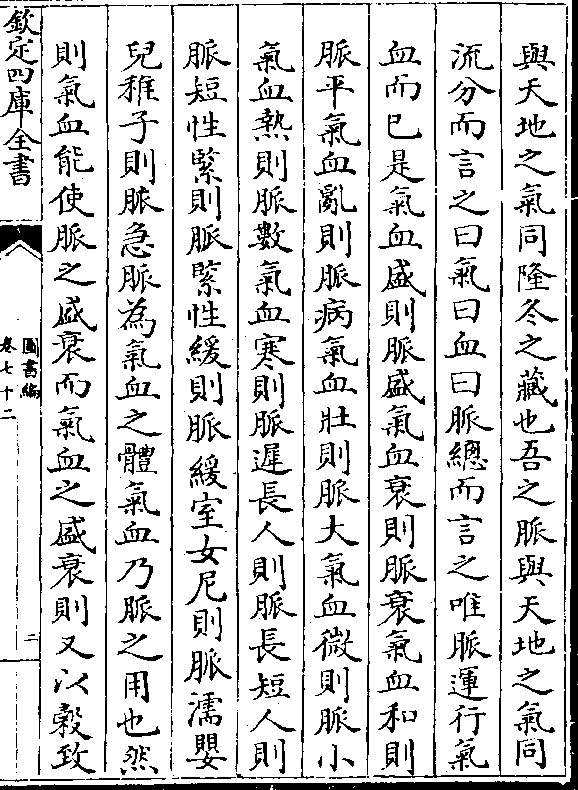 與天地之氣同隆冬之藏也吾之脈與天地之氣同
流分而言之曰氣曰血曰脈總而言之唯脈運行氣
血而已是氣血盛則脈盛氣血衰則脈衰氣血和則
脈平氣血亂則脈病氣血壯則脈大氣血微則脈小
氣血熱則脈數氣血寒則脈遲長人則脈長短人則
脈短性緊則脈緊性緩則脈緩室女尼則脈濡嬰
兒稚子則脈急脈為氣血之體氣血乃脈之用也然
則氣血能使脈之盛衰而氣血之盛衰則又以穀致
欽定四庫全書
圖書編
卷七十二
二